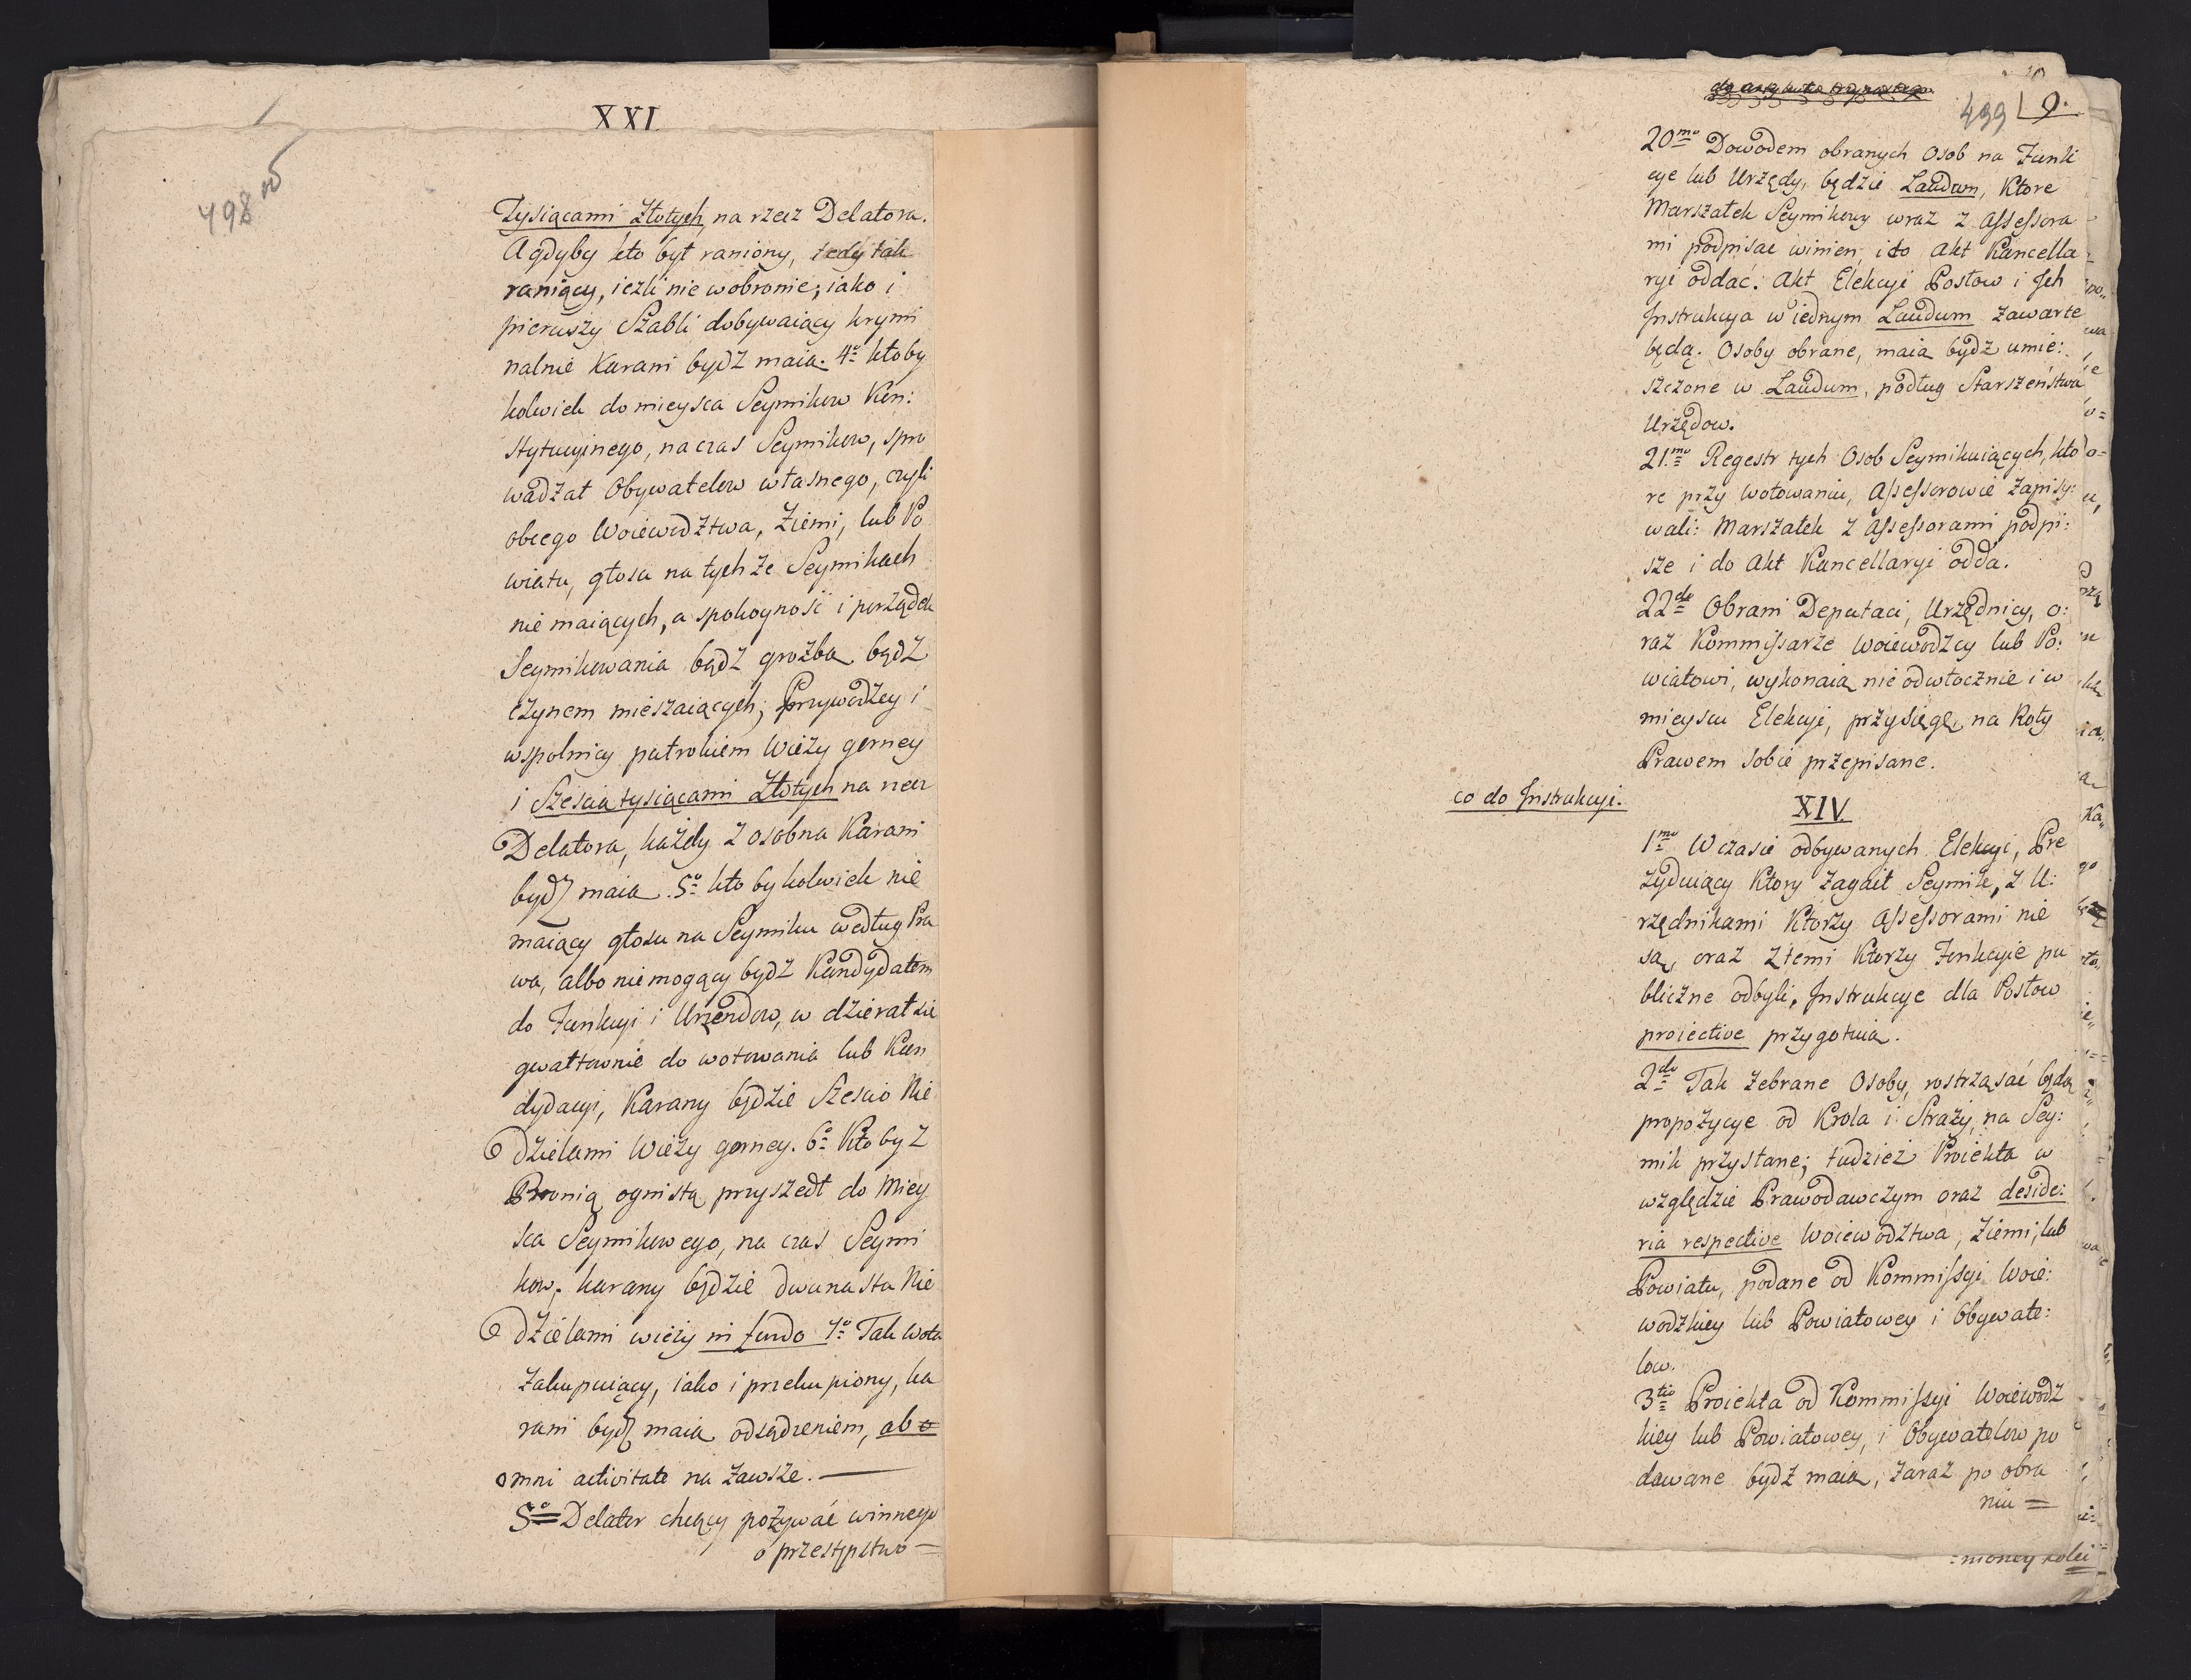 XXI
498 vo
Tysiącami Złotych, na rzecz Delatora.
A gdyby kto był raniony, tedy tak
raniący, iezli nie w obronie, iako i
pierwszy Szabli dobywaiący krymi
nalnie Karani bydź maią. 4º ktoby
kolwiek do mieysca Seymikow Kon:
stytucyinego, na czas Seymikow, spro
wadzał Obywatelow własnego, czyli
obcego Woiewodztwa, Ziemi, lub Po
wiatu, głosu na tychże Seymikach
nie maiących, a spokoyność i porządek
Seymikowania bądź groźbą bądź
czynem mieszaiących; Przywodzcy i
wspolnicy patrokiem Wieży gorney
i Sześcią tysiącami Złotych na rzecz
Delatora, każdy z osobna Karani
bydź maią. 5º kto by kolwiek nie
maiący głosu na Seymiku według Pra
wa, albo nie mogący bydź Kandydatem
do Funkcyi i Urzendow, w dzierał sie
gwałtownie do wotowania lub Kan
dydacyi, Karany będzie Sześcio Nie
dzielami Wieży gorney. 6º Kto by z
Bronią ognistą przyszedł do Miey
sca Seymikowego, na czas Seymi
kow, karany będzie dwunasta Nie
dzielami wieży in fundo 7º Tak wota
zakupuiący, iako i przekupiony, ka
rani bydź maią odsądzeniem, ab o
omni activitate na zawsze.
8º Delator chcący pozywać winnego
o przestępstwo =
499 9.
20mo Dowodem obranych Osob na Funk
cye lub Urzędy, będzie Laudum, Ktore
Marszałek Seymikowy wraz z Assessora
mi podpisać winien, i do Akt Kancella
ryi oddać. Akt Elekcyi Posłow i Jch
Jnstrukcya w iednym Laudum zawarte
będą. Osoby obrane, maią bydź umie:
szczone w Laudum, podług Starszeństwa
Urzędow.
21mo Regestr tych Osob Seymikuiących, kto
re przy wotowaniu, Assessorowie zapisy:
wali: Marszałek z Assessorami podpi:
sze i do Akt Kancellaryi odda.
22do Obrani Deputaci, Urzędnicy, o:
raz Kommissarze Woiewodzcy lub Po:
wiatowi, wykonaią nieodwłocznie i w
mieyscu Elekcyi, przysięgę na Roty
Prawem sobie przepisane.
co do Jnstrukcyi.
XIV.
1mo W czasie odbywanych Elekcyi, Pre
zyduiący Ktory zagaił Seymik, z U:
rzędnikami Ktorzy Assessorami nie
są, oraz z temi Ktorzy Funkcyie pu
bliczne odbyli, Jnstrukcye dla Posłow
proiective przygotuią.
2do Tak zebrane Osoby, rostrząsać będą
propozycye od Krola i Straży, na Sey:
mik przysłane; tudzież Proiekta w
względzie Prawodawczym oraz deside:
ria respective Woiewodztwa, Ziemi, lub
Powiatu, podane od Kommissyi Woie:
wodzkiey lub Powiatowey i Obywate:
low.
3tio Proiekta od Kommissyi Woiewodz
kiey lub Powiatowey, i Obywatelow po
dawane bydź maią, zaraz po obra
niu =